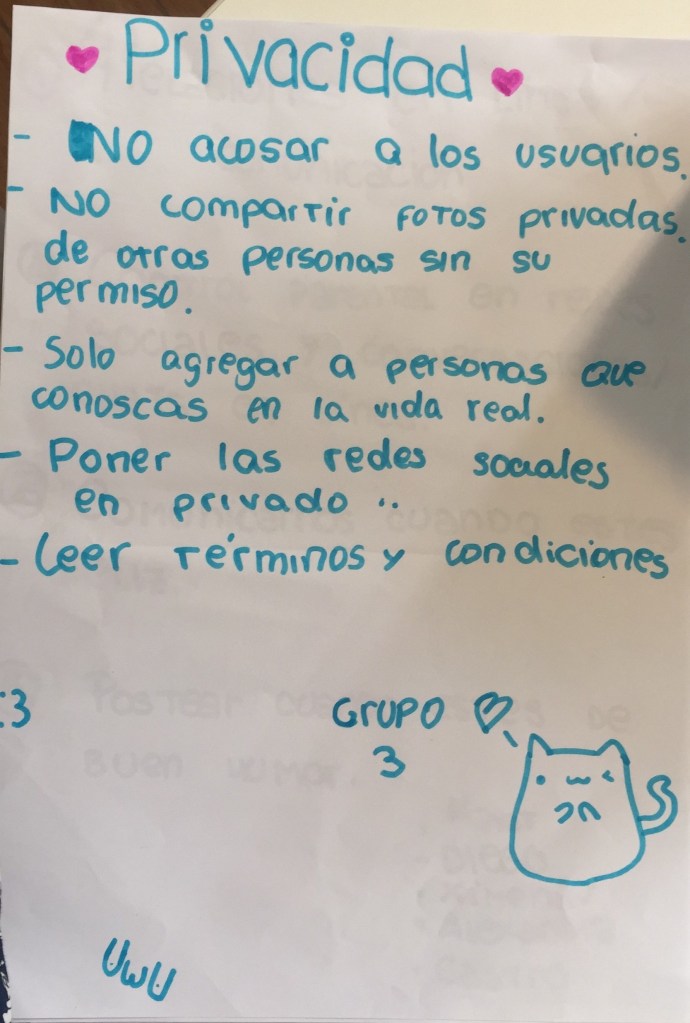 Privacidad
- NO acosar a los usuarios.
- NO compartir fotos privadas.
de otras personas sin su
permiso.
- Solo agregar a personas que
conoscas en la vida real.
- Poner las redes sociales
en privado ..
- Leer términos y condiciones
:3
GRUPO
3
UwU